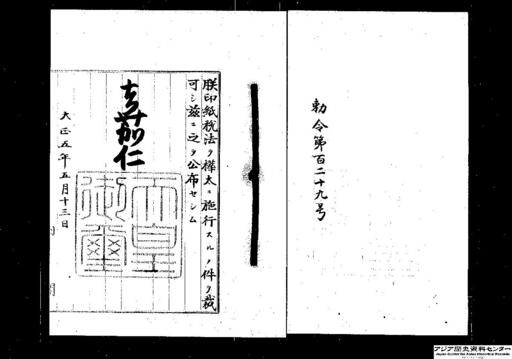 勅令第百二十九号
朕印紙税法ヲ樺太ニ施行スルノ件ヲ裁
可シ茲ニ之ヲ公布セシム
嘉仁
天皇
御璽
大正五年五月十三日
アジア歴史資料センター
Japan Center for Asian Historical Records